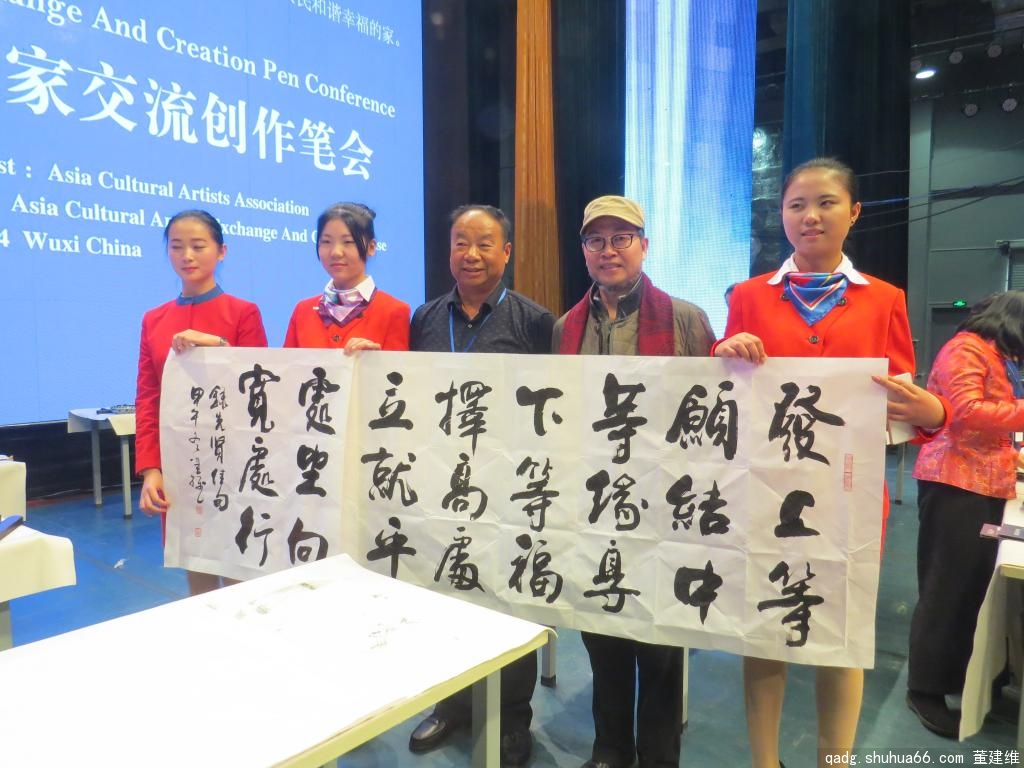 民和谐幸福的家。
ange And Creation Pen Conference
家交流创作笔会
st : Asia Cultural Artists Association
Asia Cultural xchange And
4 Wuxi China
發上等
願結中
等緣享
下等福
擇高處
立就平
處坐向
寬處行
錄先賢佳句
甲午
qadg.shuhua66.com 董建维